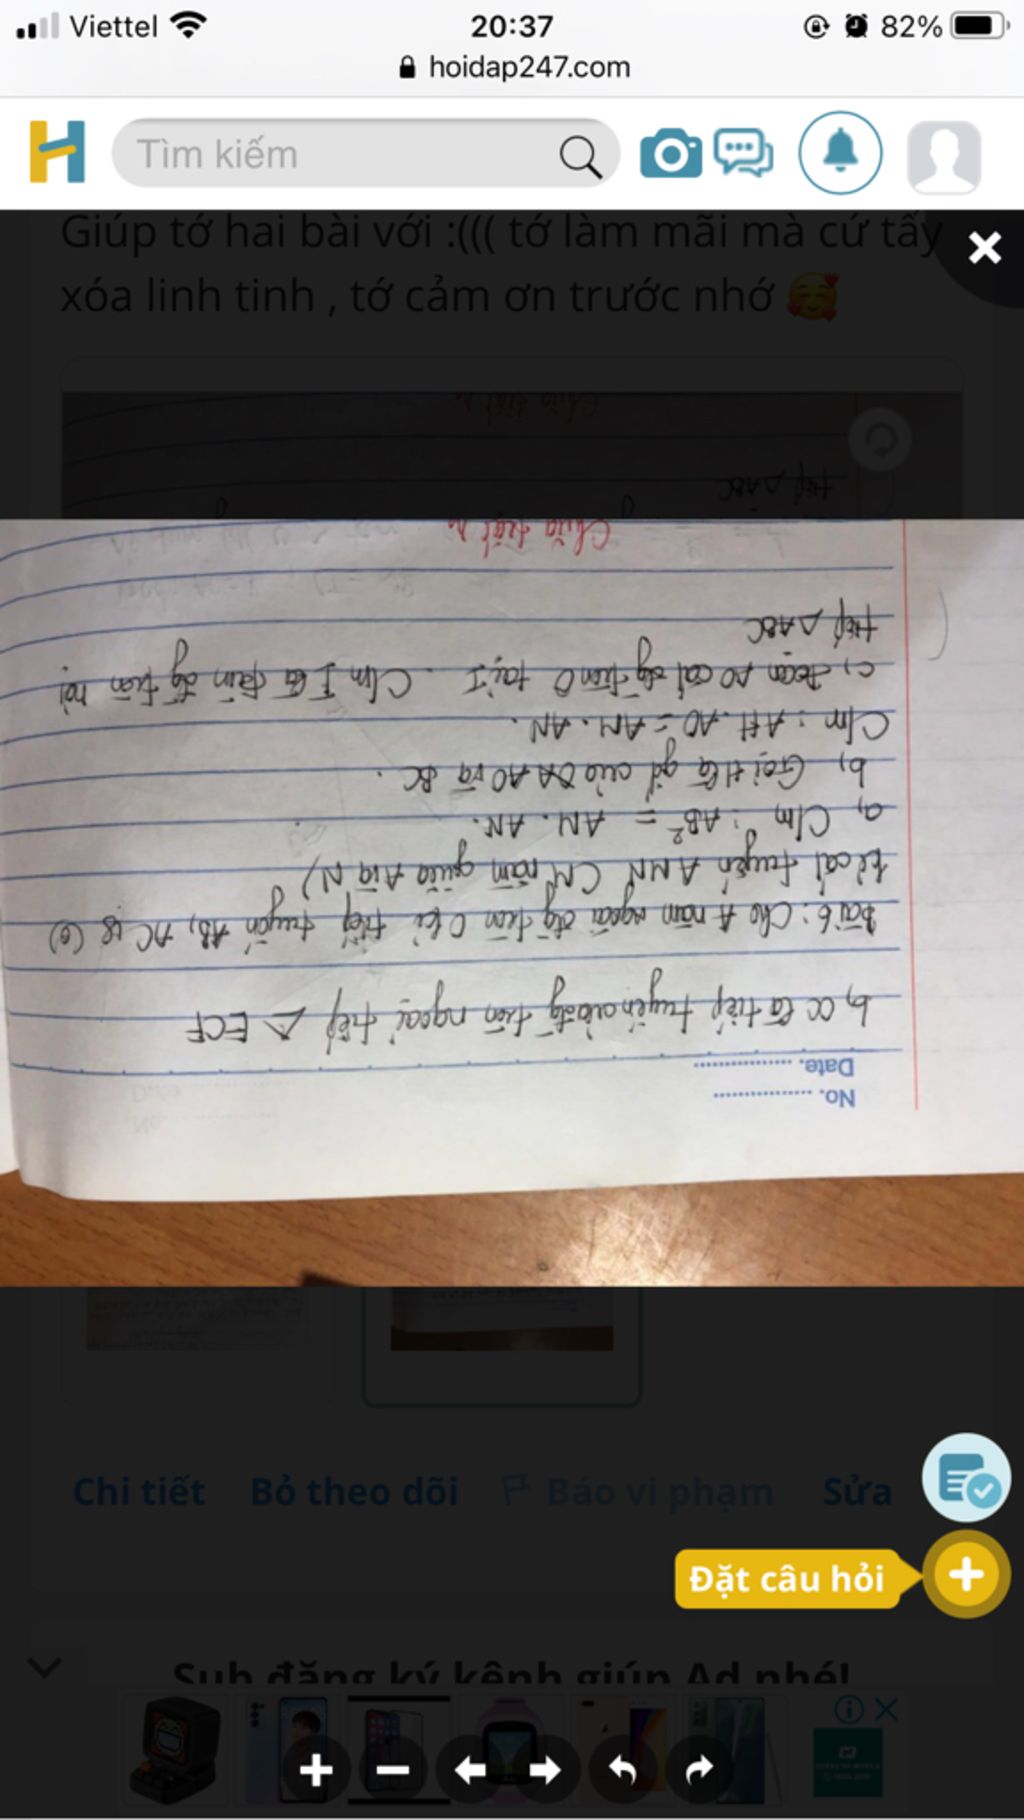 Viettel 20:37 82%
hoidap247.com
H Tìm kiếm
Giúp tớ hai bài với :((( tớ làm mãi mà cứ tẩy
xóa linh tinh , tớ cảm ơn trước nhớ 🥰
No.
Date.
b, OC là tiếp tuyến của đg tròn ngoại tiếp △ ECF
Bài 6: Cho A nằm ngoài đg tròn O kẻ tiếp tuyến AB, AC
kẻ cát tuyến AMN (M nằm giữa A và N)
a, C/m : AB² = AM . AN.
b, Gọi H là gđ của AO và BC .
C/m : AH . AO = AM . AN .
c, Đoạn AO cắt đg tròn O tại I . C/m I là tâm đg tròn nội
tiếp △ABC
Chi tiết Bỏ theo dõi Báo vi phạm Sửa
Đặt câu hỏi
Sub đăng ký kênh giúp Ad nhé!